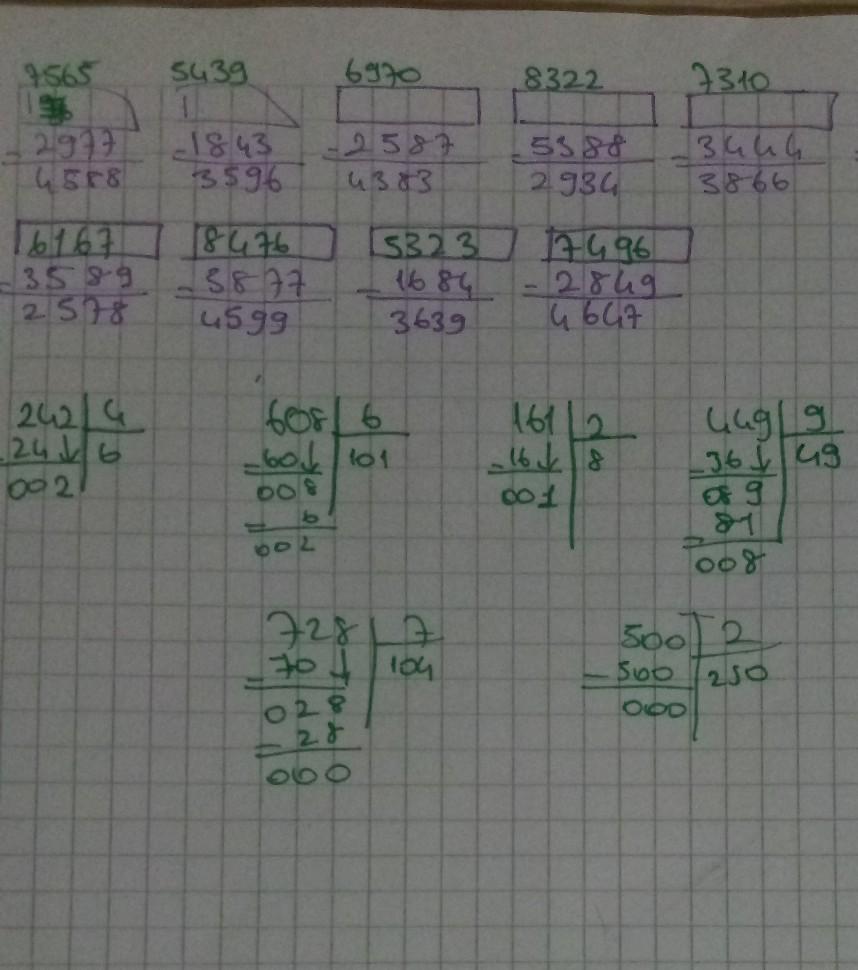 7565 5439 6970 8322 7310
1 1
- 2977 - 1843 - 2587 - 5388 - 3444
4588 3596 4383 2934 3866
6167 8476 5323 7496
- 3589 - 3877 - 1684 - 2849
2578 4599 3639 4647
242 4 608 6 161 2 449 9
- 24↓ 6 - 60↓ 101 - 16↓ 8 - 36↓ 49
002 008 001 089
- 6 - 81
002 008
728 7 500 2
- 70↓ 104 - 500 250
028 000
- 28
000